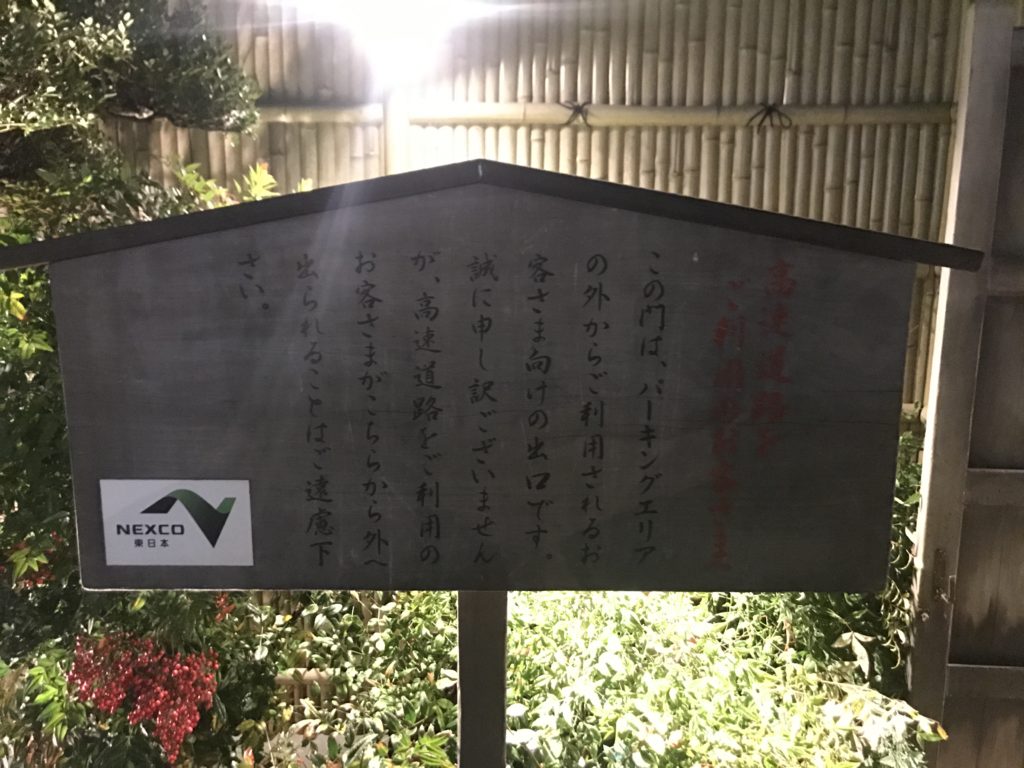 高速道路を
ご利用のお客さま
この門は、パーキングエリア
の外からご利用されるお
客さま向けの出口です。
誠に申し訳ございません
が、高速道路をご利用の
お客さまがこちらから外へ
出られることはご遠慮下
さい。
NEXCO
東日本